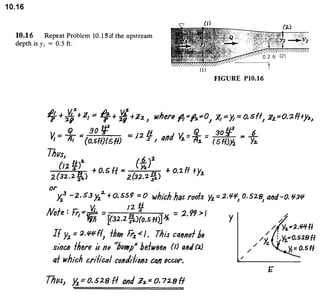 10.16
10.16 Repeat Problem 10.15 if the upstream
depth is y₁ = 0.5 ft.
(1)
(2)
Q
V₂
0.2 ft
(2)
(1)
FIGURE P10.16
p₁/γ + V₁²/2g + z₁ = p₂/γ + V₂²/2g + z₂ , where p₁=p₂=0, z₁=y₁=0.5ft, z₂=0.2ft+y₂,
V₁ = Q/A₁ = 30 ft³/s / (0.5ft)(5ft) = 12 ft/s , and V₂ = Q/A₂ = 30 ft³/s / (5ft)y₂ = 6/y₂
Thus,
(12 ft/s)² / 2(32.2 ft/s²) + 0.5 ft = (6/y₂)² / 2(32.2 ft/s²) + 0.2 ft + y₂
or
y₂³ - 2.53 y₂² + 0.559 = 0 which has roots y₂ = 2.44, 0.528, and -0.434
Note: Fr₁ = V₁/√gy₁ = 12 ft/s / [(32.2 ft/s²)(0.5ft)]^½ = 2.99 > 1
If y₂ = 2.44 ft, then Fr₂ < 1. This cannot be
since there is no "bump" between (1) and (2)
at which critical conditions can occur.
y
y₂=2.44ft
y₂=0.528ft
y₁=0.5ft
y_c
E
Thus, y₂ = 0.528 ft and z₂ = 0.728 ft